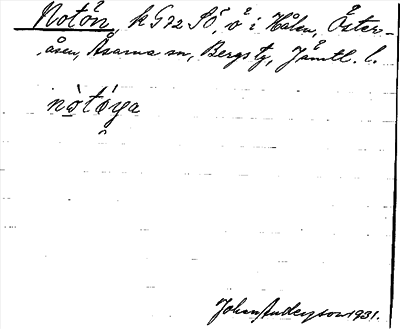 Notön, k G 72 SÖ, ö i Hålen, Öster-
åsen, Åsarna sn, Bergs tg, Jämtl. l.
nòtóya
Johan Anderson 1931.